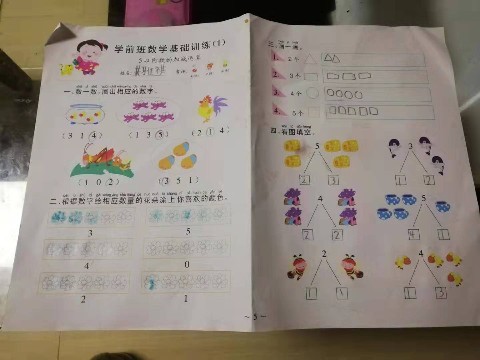 学前班数学基础训练(1)
5以内数的加减练习
姓名
一、数一数,圈出相应的数字。
(3 1 4)
(1 3 5)
(2 1 4)
(1 0 2)
(3 5 1)
二、根据数字给相应数量的花朵涂上你喜欢的颜色。
3
5
4
0
2
1
三、画一画。
1. 2个
2. 3个
3. 4个
4. 5个
四、看图填空。
5
3
2
1
2
4
5
2
2
4
1
2
4
1
1
1
3
~5~